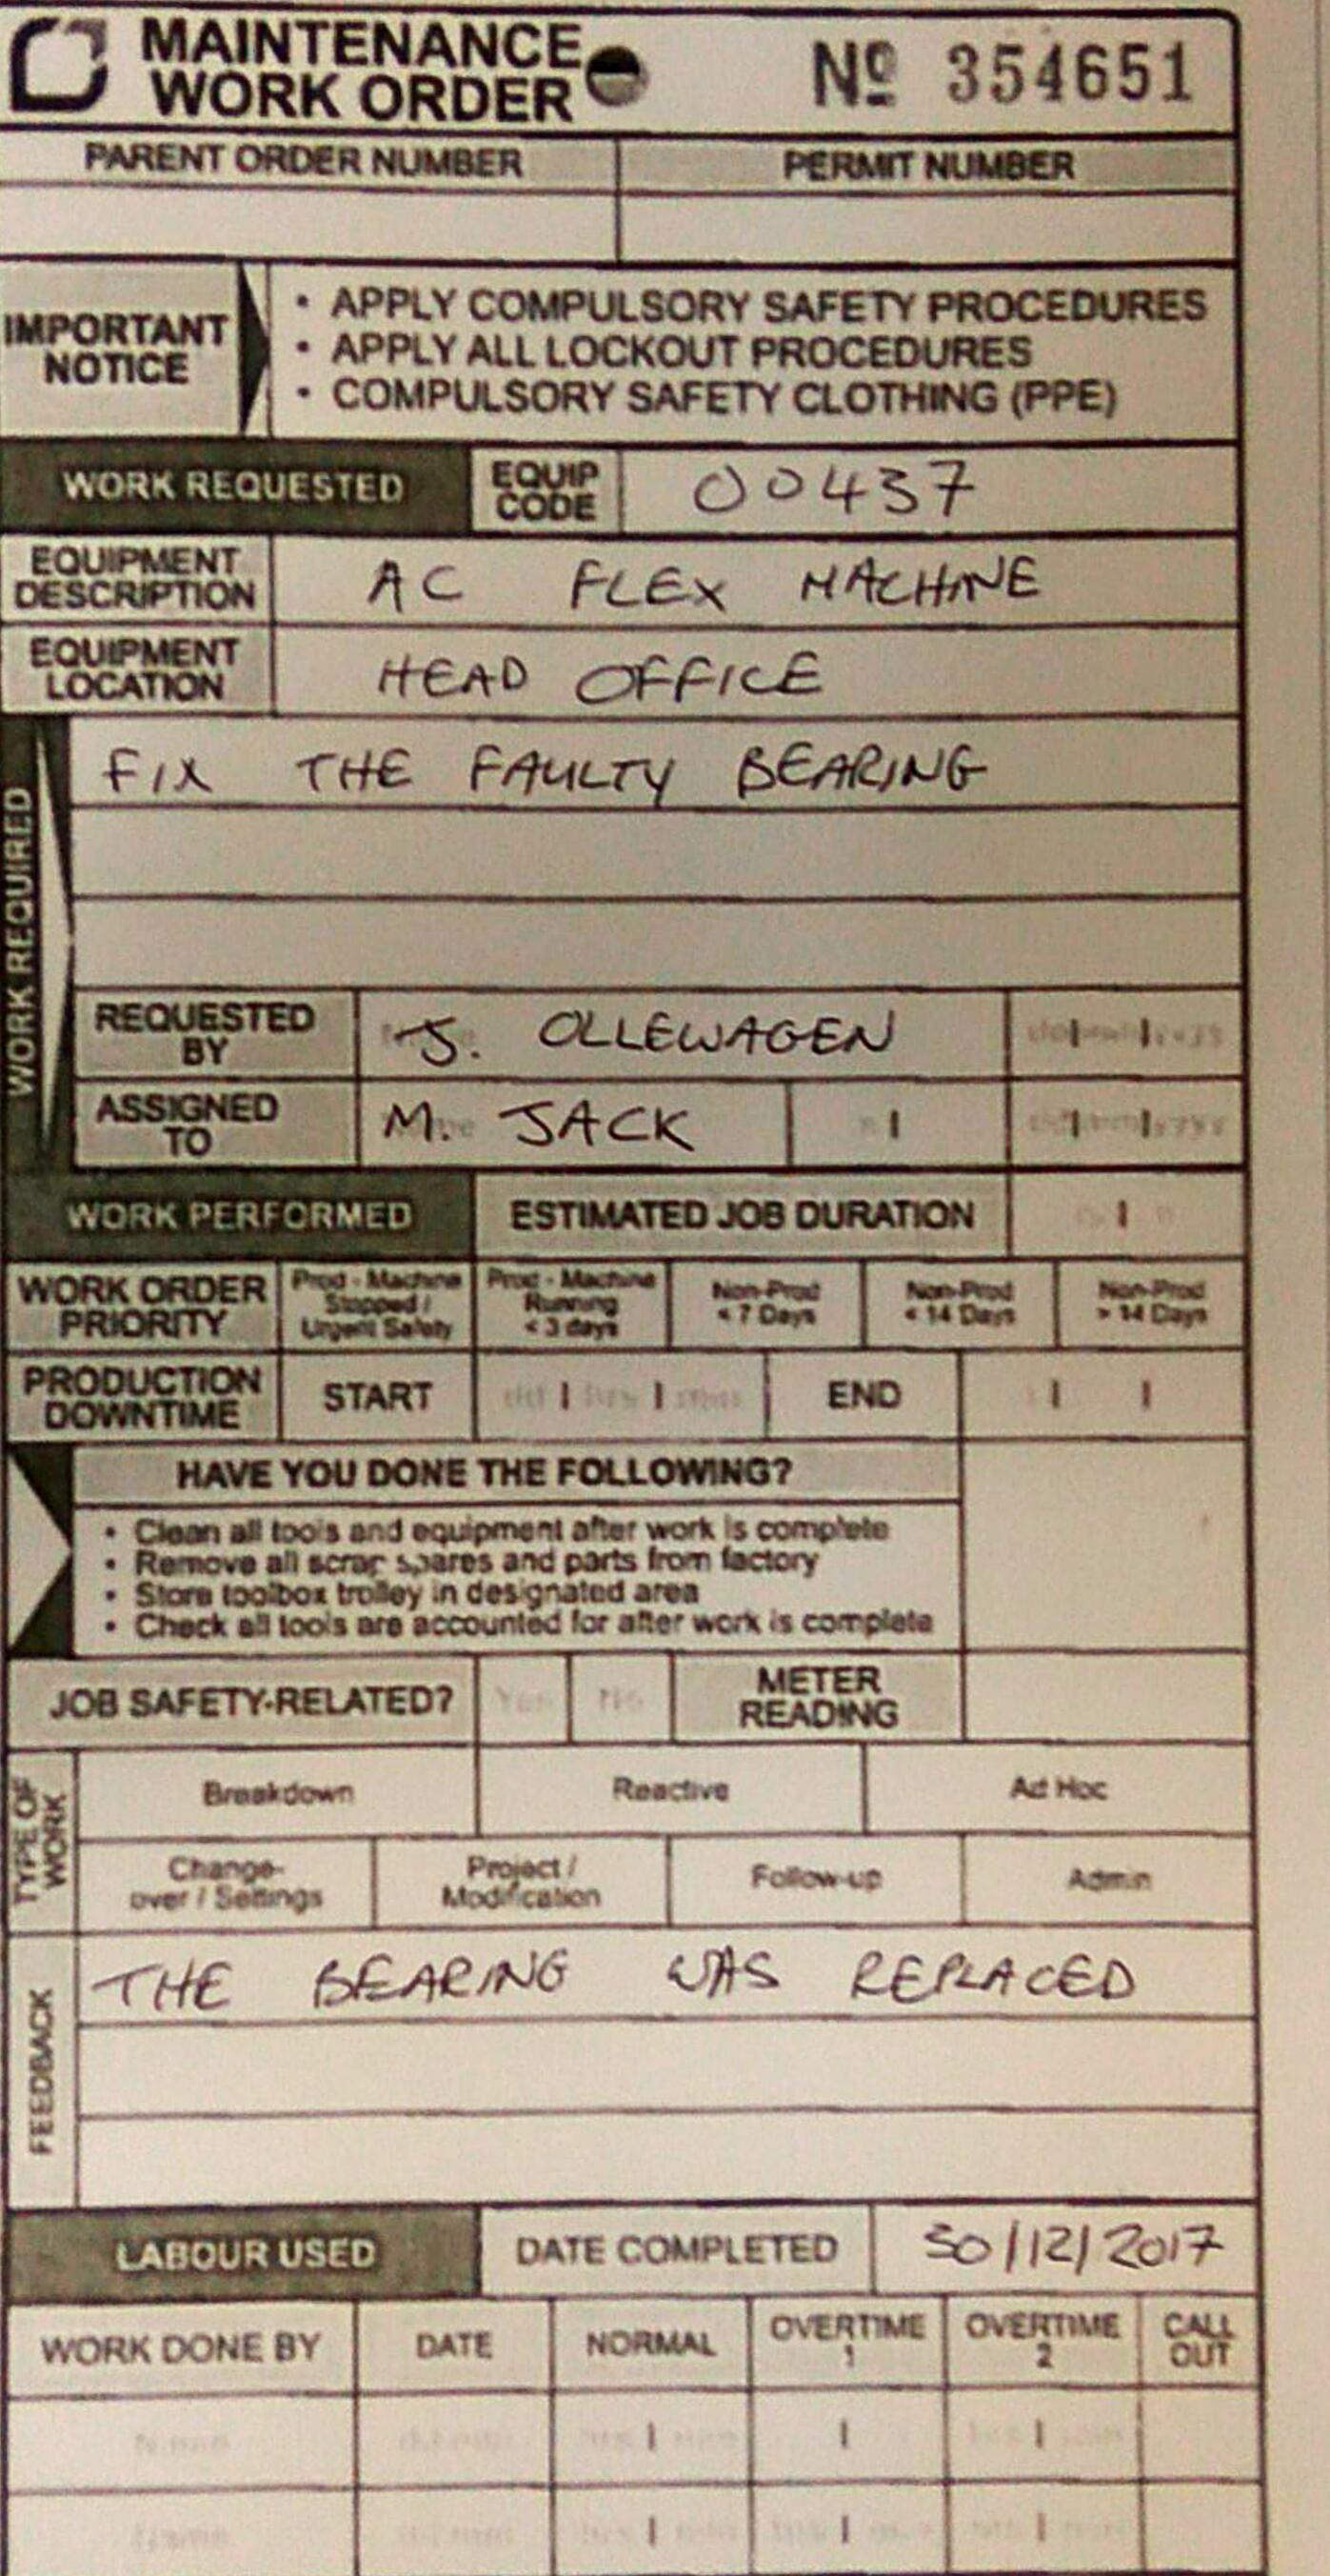 MAINTENANCE
WORK ORDER
Nº 354651
PARENT ORDER NUMBER
PERMIT NUMBER
IMPORTANT
NOTICE
• APPLY COMPULSORY SAFETY PROCEDURES
• APPLY ALL LOCKOUT PROCEDURES
• COMPULSORY SAFETY CLOTHING (PPE)
WORK REQUESTED
EQUIP
CODE
00437
EQUIPMENT
DESCRIPTION
AC FLEX MACHINE
EQUIPMENT
LOCATION
HEAD OFFICE
WORK REQUIRED
FIX THE FAULTY BEARING
REQUESTED
BY
J. OLLEWAGEN
ASSIGNED
TO
M. JACK
WORK PERFORMED
ESTIMATED JOB DURATION
WORK ORDER
PRIORITY
Prod - Machine
Stopped /
Urgent Safety
Prod - Machine
Running
< 3 days
Non-Prod
< 7 Days
Non-Prod
< 14 Days
Non-Prod
> 14 Days
PRODUCTION
DOWNTIME
START
END
HAVE YOU DONE THE FOLLOWING?
• Clean all tools and equipment after work is complete
• Remove all scrap spares and parts from factory
• Store toolbox trolley in designated area
• Check all tools are accounted for after work is complete
JOB SAFETY-RELATED?
Yes
No
METER
READING
TYPE OF
WORK
Breakdown
Reactive
Ad Hoc
Change-
over / Settings
Project /
Modification
Follow-up
Admin
FEEDBACK
THE BEARING WAS REPLACED
LABOUR USED
DATE COMPLETED
30/12/2017
WORK DONE BY
DATE
NORMAL
OVERTIME
1
OVERTIME
2
CALL
OUT